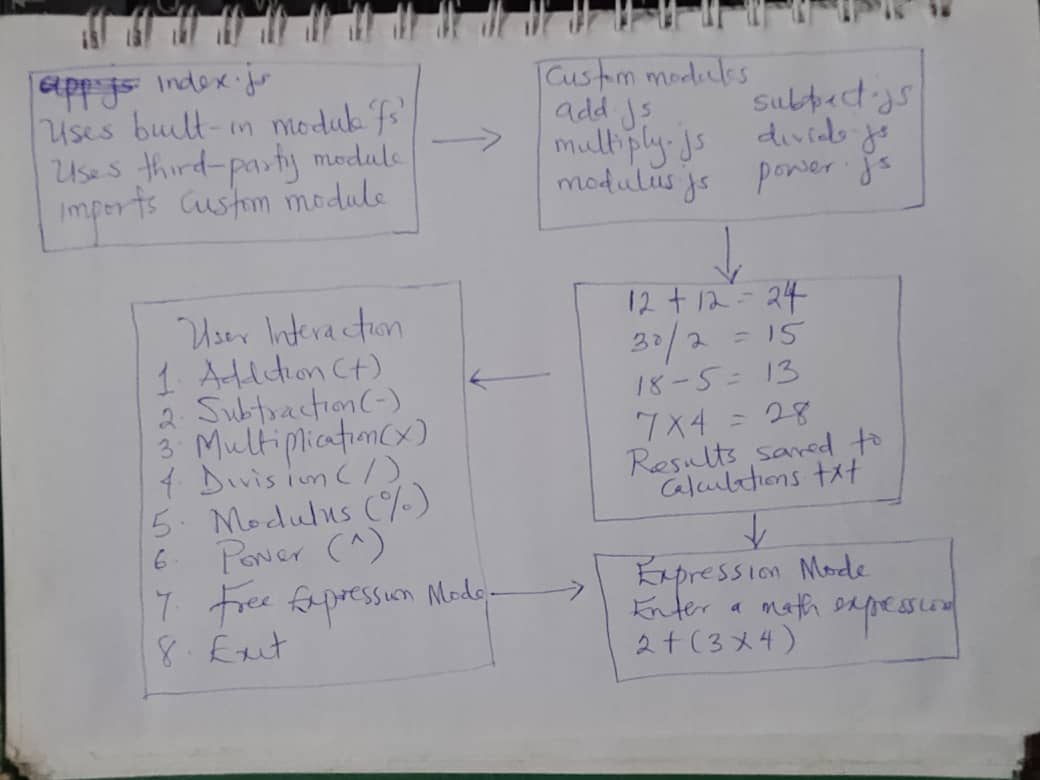 app.js index.js
Uses built-in module 'fs'
Uses third-party module
imports custom module
Custom modules
add js
subtract.js
multiply.js
divide.js
modulus.js
power.js
12 + 12 = 24
30/2 = 15
18 - 5 = 13
7 x 4 = 28
Results saved to
Calculations.txt
User Interaction
1. Addition (+)
2. Subtraction (-)
3. Multiplication (x)
4. Division (/)
5. Modulus (%)
6. Power (^)
7. Free Expression Mode
8. Exit
Expression Mode
Enter a math expression
2+(3x4)